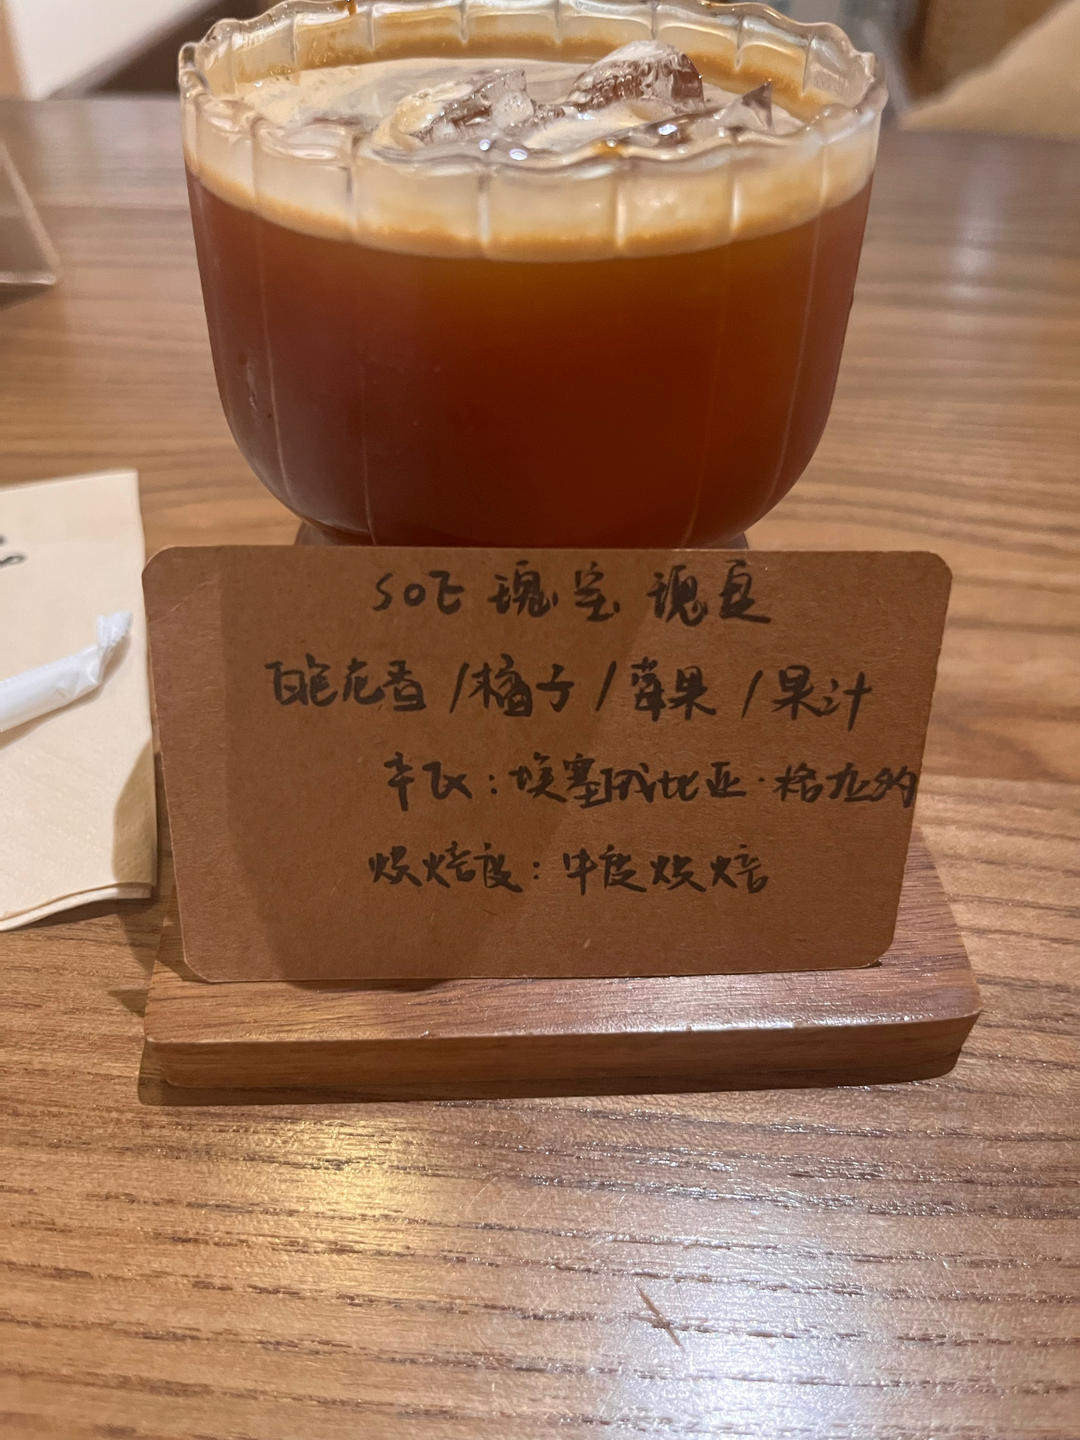 SOE 瑰宝 瑰夏
白色花香/橘子/莓果/果汁
产区:埃塞俄比亚·格尤努
烘焙度:中度烘焙